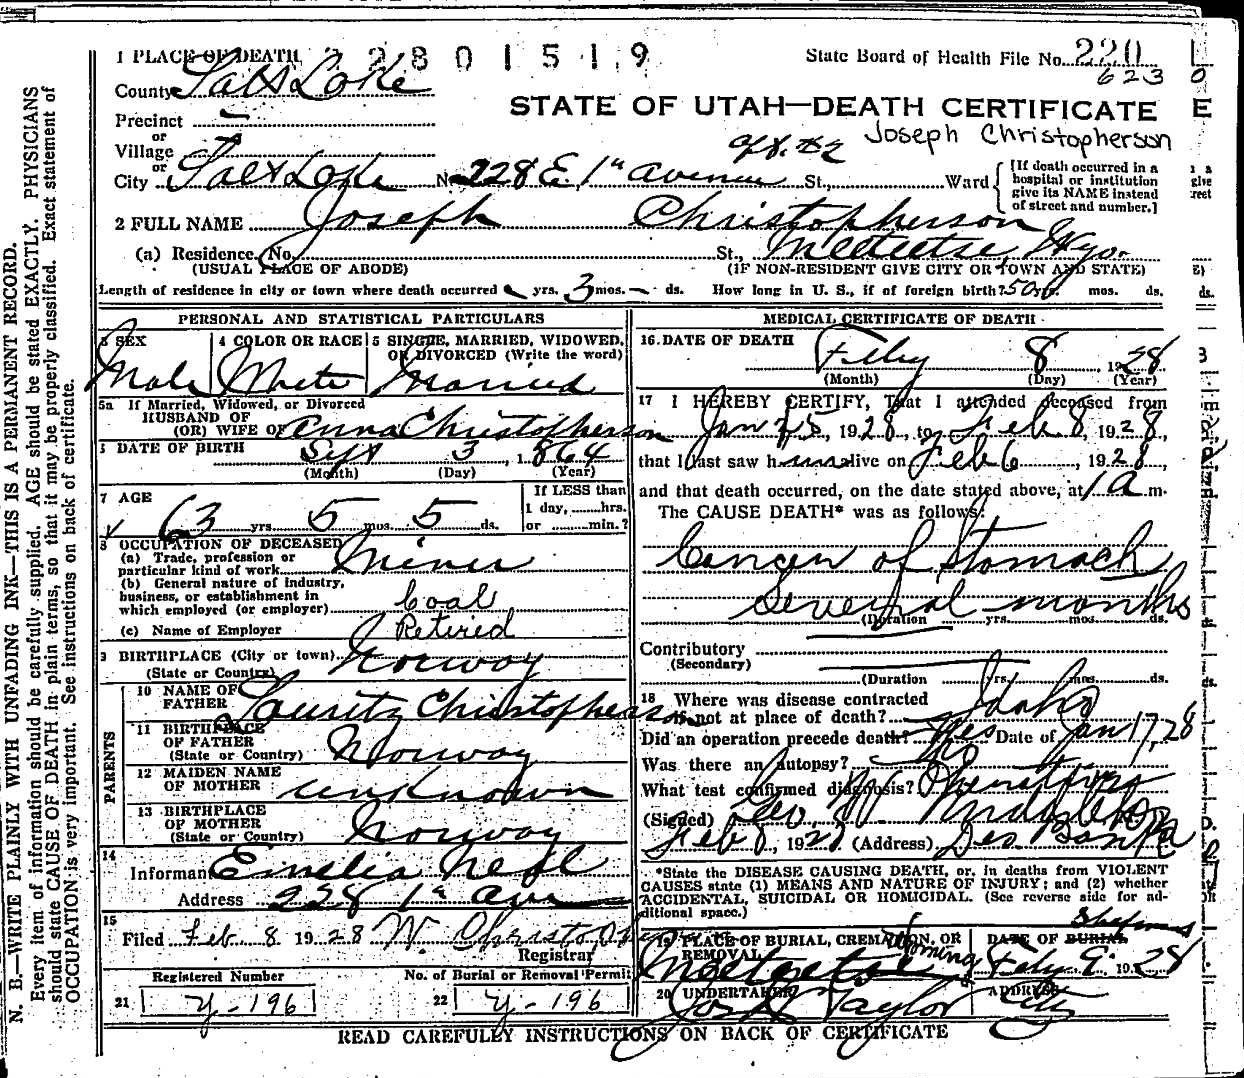 1 PLACE OF DEATH 2 2 8 0 1 5 1 9
State Board of Health File No. 220
623
County Salt Lake
STATE OF UTAH—DEATH CERTIFICATE
Precinct
or
Village
or
Joseph Christopherson
City Salt Lake No. 228 E. 1st Avenue St., Ward
[If death occurred in a
hospital or institution
give its NAME instead
of street and number.]
2 FULL NAME Joseph Christopherson
(a) Residence No. St., Meeteetse, Wyo.
(USUAL PLACE OF ABODE) (IF NON-RESIDENT GIVE CITY OR TOWN AND STATE)
Length of residence in city or town where death occurred yrs. 3 mos. — ds. How long in U. S., if of foreign birth? 50 yrs. mos. ds.
PERSONAL AND STATISTICAL PARTICULARS
3 SEX
Male
4 COLOR OR RACE
White
5 SINGLE, MARRIED, WIDOWED,
OR DIVORCED (Write the word)
Married
5a If Married, Widowed, or Divorced
HUSBAND OF
(OR) WIFE OF Anna Christopherson
DATE OF BIRTH Sept 3, 1864
(Month) (Day) (Year)
7 AGE
63 yrs. 5 mos. 5 ds.
If LESS than
1 day, hrs.
or min.?
8 OCCUPATION OF DECEASED
(a) Trade, profession or
particular kind of work Miner
(b) General nature of industry,
business, or establishment in
which employed (or employer) Coal
(c) Name of Employer Retired
9 BIRTHPLACE (City or town)
(State or Country) Norway
PARENTS
10 NAME OF
FATHER Lauritz Christopherson
11 BIRTHPLACE
OF FATHER
(State or Country) Norway
12 MAIDEN NAME
OF MOTHER unknown
13 BIRTHPLACE
OF MOTHER
(State or Country) Norway
14
Informant Emelia Neal
Address 228 1st Ave
15
Filed Feb 8 1928 W. Christo
Registrar
Registered Number
21 y-196
No. of Burial or Removal Permit
22 y-196
MEDICAL CERTIFICATE OF DEATH
16 DATE OF DEATH
Feby 8, 1928
(Month) (Day) (Year)
17 I HEREBY CERTIFY, That I attended deceased from
Jan 25, 1928, to Feb. 8, 1928,
that I last saw him alive on Feb 6, 1928,
and that death occurred, on the date stated above, at 1 a m.
The CAUSE DEATH* was as follows:
Cancer of Stomach
Several months
(Duration yrs. mos. ds.
Contributory
(Secondary)
(Duration yrs. mos. ds.
18 Where was disease contracted
if not at place of death? Idaho
Did an operation precede death? Yes Date of Jan 17, 28
Was there an autopsy? No
What test confirmed diagnosis? Operation
(Signed) Geo.
Feb 8, 1928 (Address)
*State the DISEASE CAUSING DEATH, or, in deaths from VIOLENT
CAUSES state (1) MEANS AND NATURE OF INJURY; and (2) whether
ACCIDENTAL, SUICIDAL OR HOMICIDAL. (See reverse side for ad-
ditional space.)
19 PLACE OF BURIAL, CREMATION, OR
REMOVAL
Meeteetse Wyoming
DATE OF BURIAL
Feby 9 1928
20 UNDERTAKER
Jos Taylor
ADDRESS
City
READ CAREFULLY INSTRUCTIONS ON BACK OF CERTIFICATE
N. B.—WRITE PLAINLY WITH UNFADING INK—THIS IS A PERMANENT RECORD.
Every item of information should be carefully supplied. AGE should be stated EXACTLY. PHYSICIANS
should state CAUSE OF DEATH in plain terms, so that it may be properly classified. Exact statement of
OCCUPATION is very important. See instructions on back of certificate.